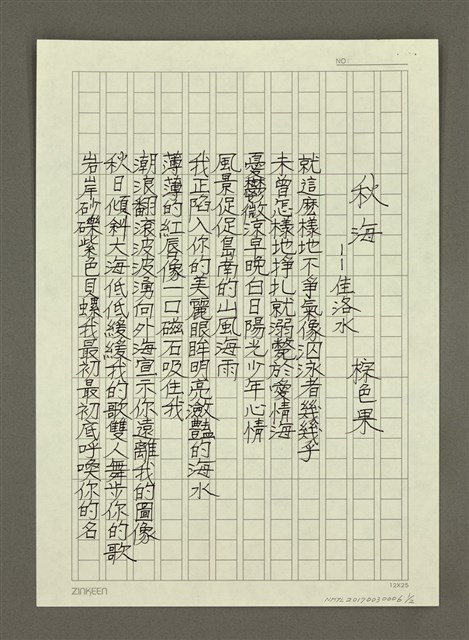 NO:
秋海
——佳洛水
棕色果
就這麼樣地不爭氣像泅泳者幾幾乎
未曾怎樣地掙扎就溺斃於愛情海
憂鬱微涼早晚白日陽光少年心情
風景促促島南的山風海雨
我正陷入你的美麗眼眸明亮瀲豔的海水
薄薄的紅唇像一口磁石吸住我
潮浪翻滾波波湧向外海宣示你遠離我的圖像
秋日傾斜大海低低緩緩我的歌雙人舞步你的歌
岩岸砂礫紫色貝螺我最初最初底呼喚你的名
ZINKEEN
12X25
NMTL20170030006 1/2